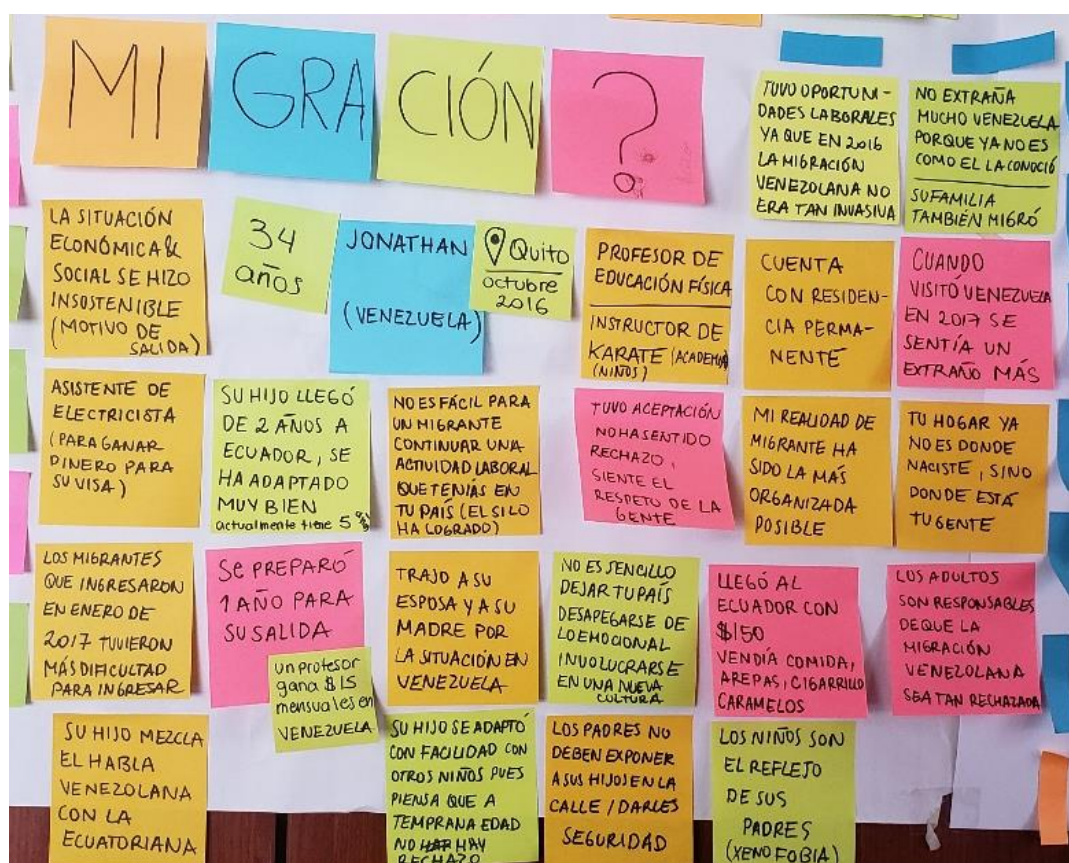 MI
GRA
CIÓN
?
TUVO OPORTUNI-
DADES LABORALES
YA QUE EN 2016
LA MIGRACIÓN
VENEZOLANA NO
ERA TAN INVASIVA
NO EXTRAÑA
MUCHO VENEZUELA
PORQUE YA NO ES
COMO EL LA CONOCIÓ
SU FAMILIA
TAMBIÉN MIGRÓ
LA SITUACIÓN
ECONÓMICA &
SOCIAL SE HIZO
INSOSTENIBLE
(MOTIVO DE
SALIDA)
34
años
JONATHAN
(VENEZUELA)
Quito
octubre
2016
PROFESOR DE
EDUCACIÓN FÍSICA
INSTRUCTOR DE
KARATE (ACADEMIA)
(NIÑOS)
CUENTA
CON RESIDEN-
CIA PERMA-
NENTE
CUANDO
VISITÓ VENEZUELA
EN 2017 SE
SENTÍA UN
EXTRAÑO MÁS
ASISTENTE DE
ELECTRICISTA
(PARA GANAR
DINERO PARA
SU VISA)
SU HIJO LLEGÓ
DE 2 AÑOS A
ECUADOR, SE
HA ADAPTADO
MUY BIEN
actualmente tiene 5
NO ES FÁCIL PARA
UN MIGRANTE
CONTINUAR UNA
ACTIVIDAD LABORAL
QUE TENÍAS EN
TU PAÍS (EL SI LO
HA LOGRADO)
TUVO ACEPTACIÓN
NO HA SENTIDO
RECHAZO,
SIENTE EL
RESPETO DE LA
GENTE
MI REALIDAD DE
MIGRANTE HA
SIDO LA MÁS
ORGANIZADA
POSIBLE
TU HOGAR YA
NO ES DONDE
NACISTE, SINO
DONDE ESTÁ
TU GENTE
LOS MIGRANTES
QUE INGRESARON
EN ENERO DE
2017 TUVIERON
MÁS DIFICULTAD
PARA INGRESAR
SE PREPARÓ
1 AÑO PARA
SU SALIDA
un profesor
gana $15
mensuales en
VENEZUELA
TRAJO A SU
ESPOSA Y A SU
MADRE POR
LA SITUACIÓN EN
VENEZUELA
NO ES SENCILLO
DEJAR TU PAÍS
DESAPEGARSE DE
LO EMOCIONAL
INVOLUCRARSE
EN UNA NUEVA
CULTURA
LLEGÓ AL
ECUADOR CON
$150
VENDÍA COMIDA,
AREPAS, CIGARRILLO
CARAMELOS
LOS ADULTOS
SON RESPONSABLES
DE QUE LA
MIGRACIÓN
VENEZOLANA
SEA TAN RECHAZADA
SU HIJO MEZCLA
EL HABLA
VENEZOLANA
CON LA
ECUATORIANA
SU HIJO SE ADAPTÓ
CON FACILIDAD CON
OTROS NIÑOS PUES
PIENSA QUE A
TEMPRANA EDAD
NO HAY
RECHAZO
LOS PADRES NO
DEBEN EXPONER
A SUS HIJOS EN LA
CALLE / DARLES
SEGURIDAD
LOS NIÑOS SON
EL REFLEJO
DE SUS
PADRES
(XENOFOBIA)